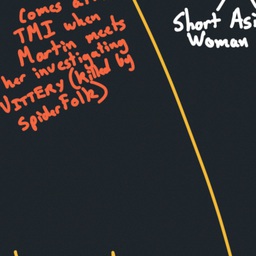 Comes
TMI when
Martin meets
her investigating
VITTERY (killed by
SpiderFolk)
Short Asi
Woman